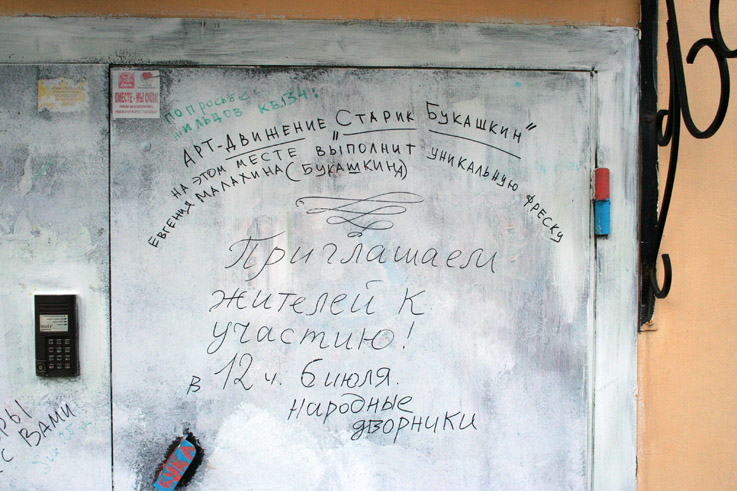 ВМЕСТЕ - МЫ СИЛА!
ПО ПРОСЬБЕ
ЖИЛЬЦОВ КВ134:
АРТ-ДВИЖЕНИЕ "СТАРИК БУКАШКИН"
НА ЭТОМ МЕСТЕ ВЫПОЛНИТ УНИКАЛЬНУЮ ФРЕСКУ
ЕВГЕНИЯ МАЛАХИНА (БУКАШКИНА)
Приглашаем
жителей к
участию!
в 12 ч. 6 июля.
народные
дворники
РЫ
С ВАМИ
БУКА